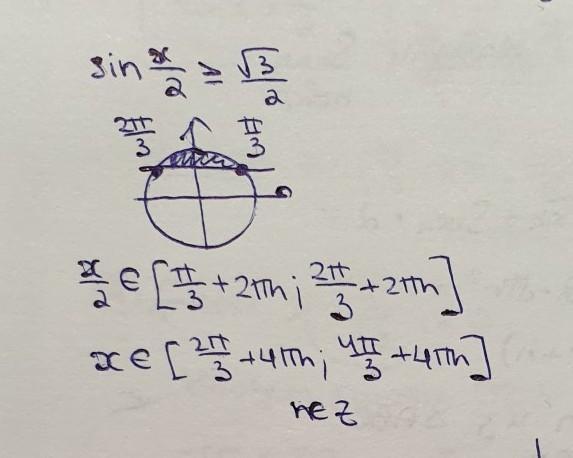 sin x/2 ≥ √3/2
2π/3 π/3
0
x/2 ∈ [π/3 + 2πn; 2π/3 + 2πn]
x ∈ [2π/3 + 4πn; 4π/3 + 4πn]
n∈Z